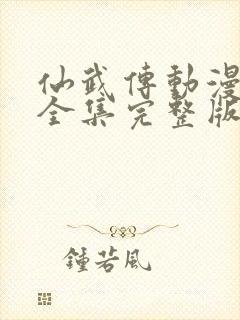 仙武傳動漫
全集完整版
鍾若風